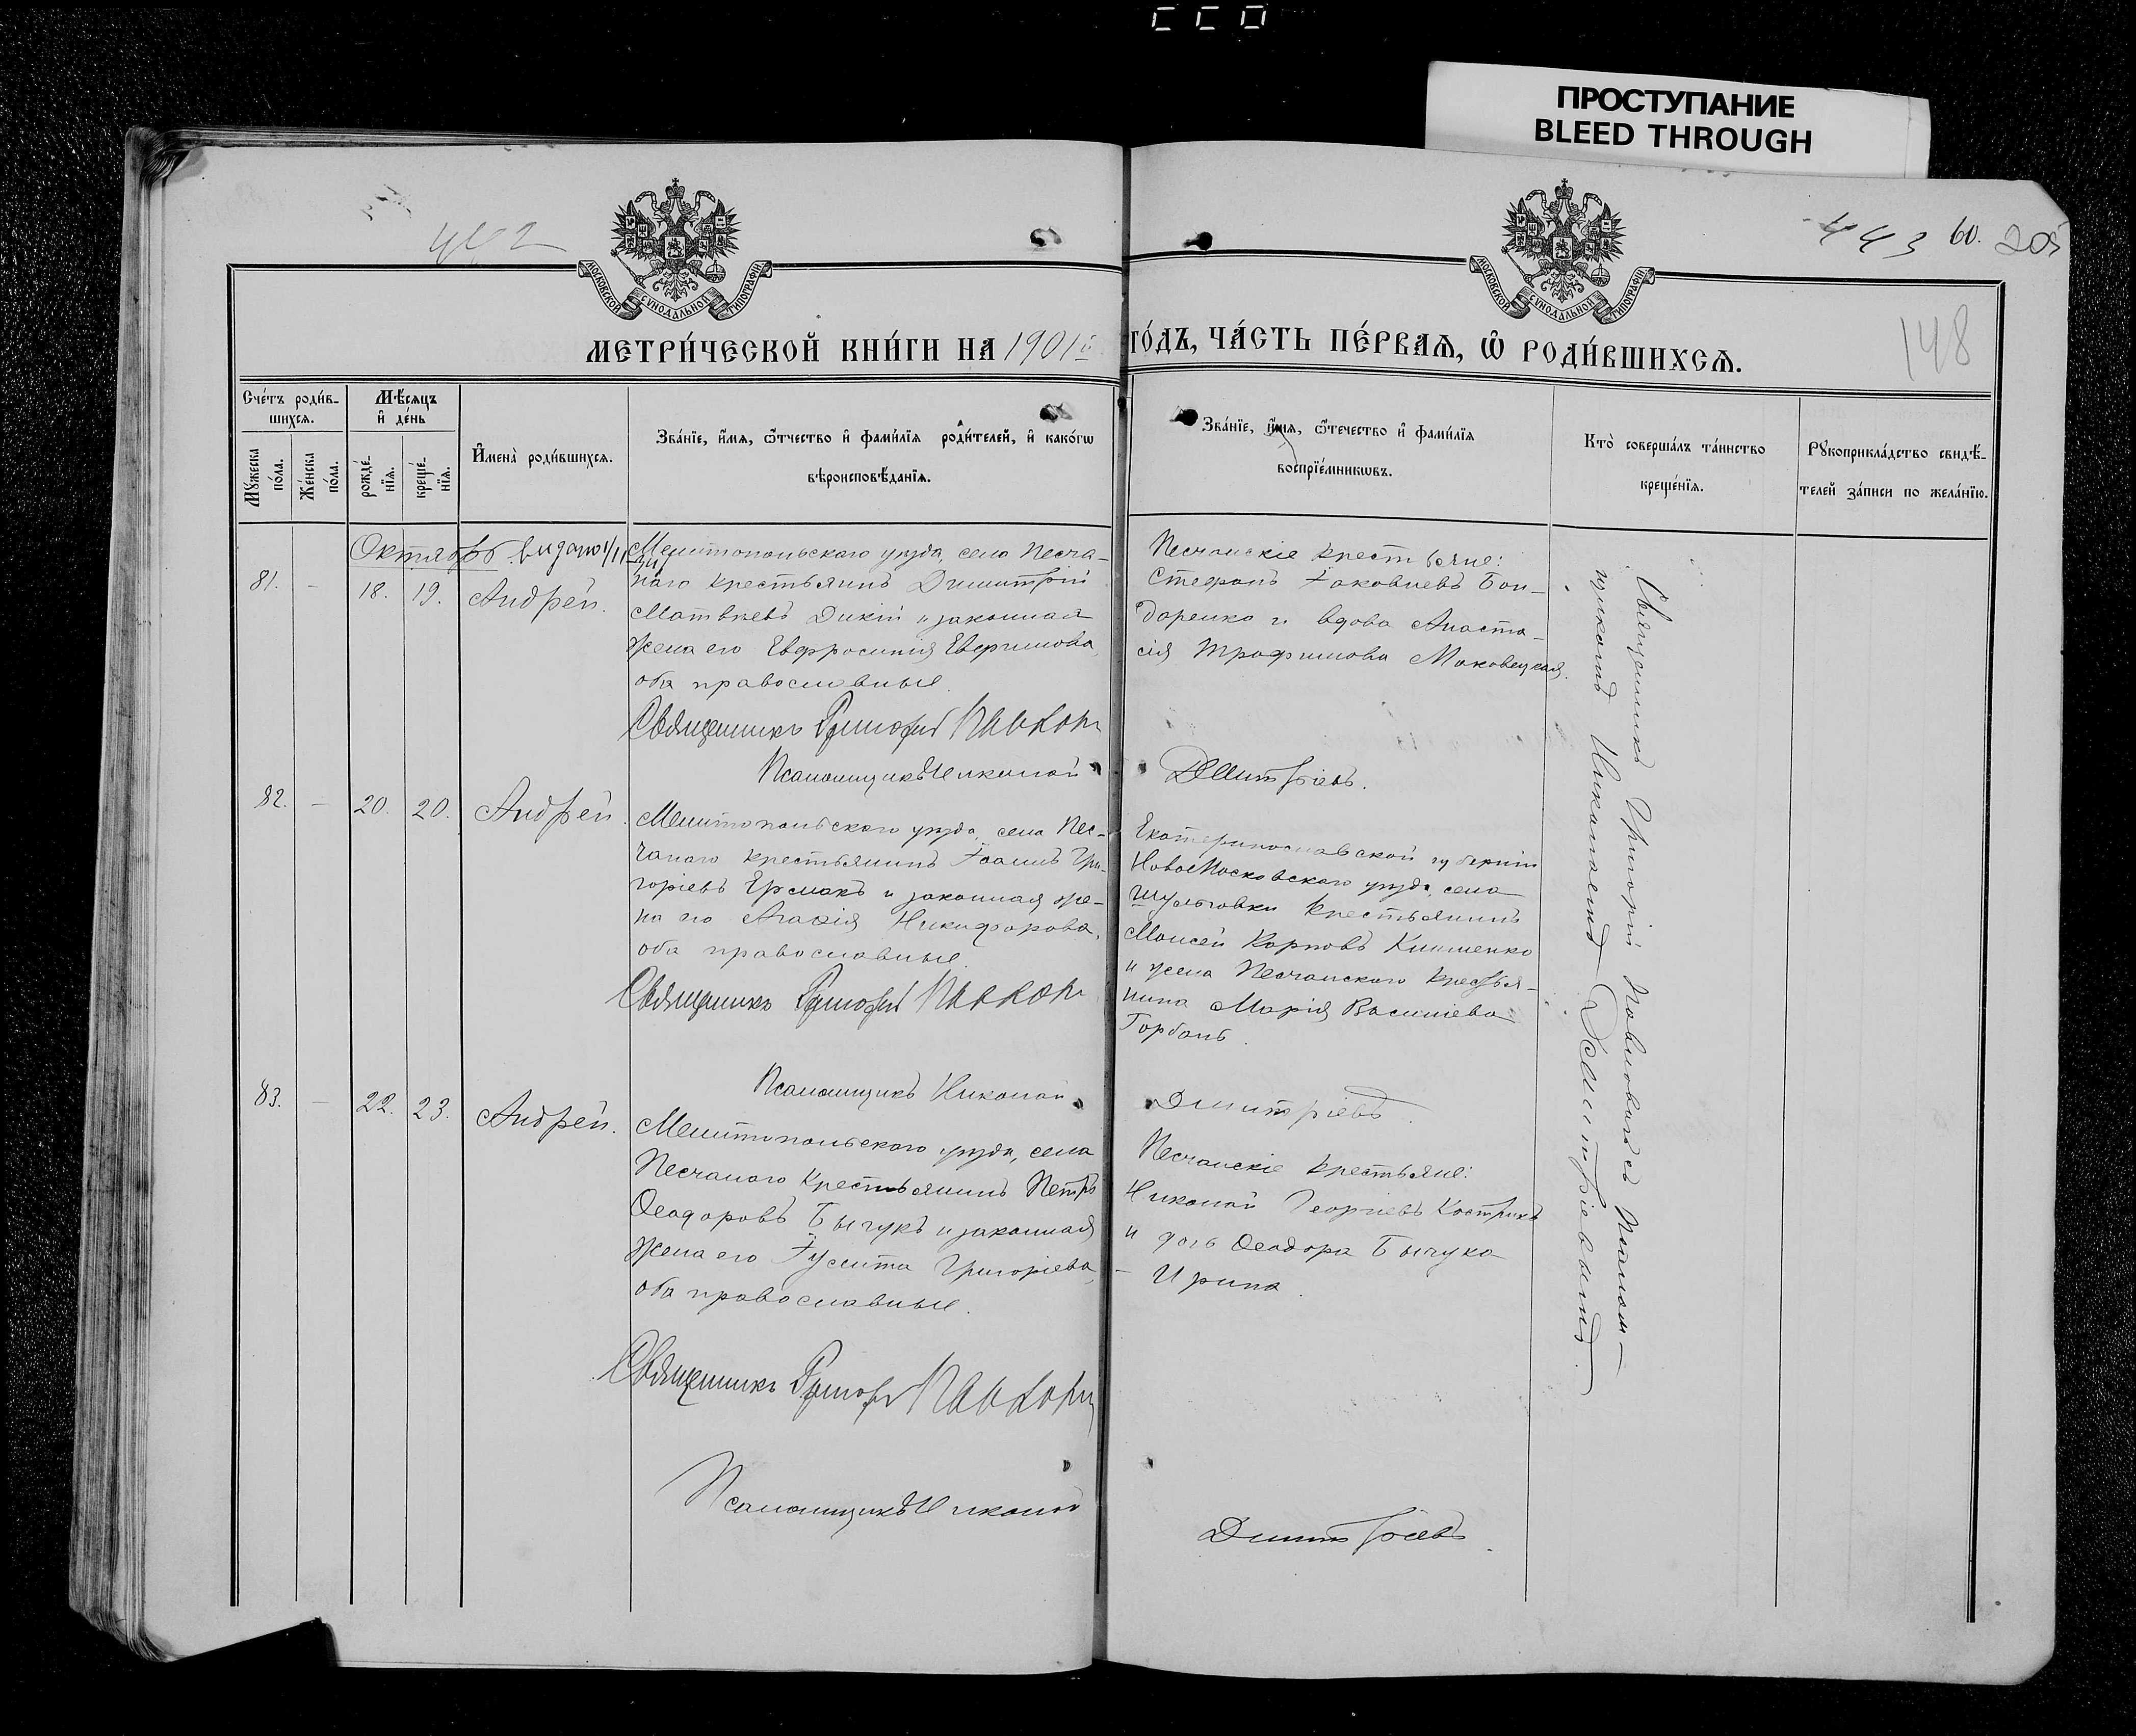 ПРОСТУПАНИЕ
BLEED THROUGH
442
443 60. 205
148
МОСКОВСКОЙ СѴНОДАЛЬНОЙ ТИПОГРАФІИ
МОСКОВСКОЙ СѴНОДАЛЬНОЙ ТИПОГРАФІИ
МЕТРИ́ЧЕСКОЙ КНИ́ГИ НА 1901й ГО́ДЪ, ЧА́СТЬ ПЕ́РВАѦ, Ѡ҆ РОДИ́ВШИХСѦ.
Сче́тъ роди́в-
шихсѧ.
Мꙋ́жеска по́ла.
Же́нска по́ла.
Мѣ́сѧцъ
и҆ де́нь
рожде́-
нїѧ.
креще́-
нїѧ.
И҆мена̀ роди́вшихсѧ.
Зва́нїе, и҆́мѧ, ѻ҆́тчество и҆ фами́лїѧ роди́телей, и҆ како́гѡ
вѣроисповѣ́данїѧ.
Зва́нїе, и҆́мѧ, ѻ҆́течество и҆ фами́лїѧ
воспрїе́мникѡвъ.
Кто̀ соверша́лъ та́инство
креще́нїѧ.
Рꙋкоприкла́дство свидѣ́-
телей за́писи по жела́нїю.
Октябрь. выдано
81. – 18. 19. Андрей.
Мелитопольскаго уѣзда, села Песча-
наго крестьянинъ Димитрій
Матвѣевъ Дикій и законная
жена его Евфросинія Евфимова,
оба православные.
Священникъ Григорій Павлов
Псаломщикъ Николай Дмитріевъ.
Песчанскіе крестьяне:
Стефанъ Іаковлевъ Бон-
даренко и вдова Анаста-
сія Трофимова Маковецкая.
82. – 20. 20. Андрей.
Мелитопольскаго уѣзда, села Пес-
чанаго крестьянинъ Іоаннъ Гри-
горіевъ Ермакъ и законная же-
на его Агафія Никифорова,
оба православные.
Священникъ Григорій Павлов
Псаломщикъ Николай Дмитріевъ.
Екатеринославской губерніи
Новомосковскаго уѣзда, села
Шульговки крестьянинъ
Моисей Карповъ
и жена Песчанскаго крестья-
нина Марія Василіева
Горбань.
83. – 22. 23. Андрей.
Мелитопольскаго уѣзда, села
Песчанаго крестьянинъ Петръ
Ѳеодоровъ Бычукъ и законная
жена его Іулитта Григоріева,
оба православные.
Священникъ Григорій Павлов
Псаломщикъ Николай Дмитріевъ.
Песчанскіе крестьяне:
Николай Георгіевъ Кострикъ
и дочь Ѳеодора Бычука
– Ирина.
Священникъ Григорій Павловскій съ Псалом-
щикомъ Николаемъ Дмитріевымъ.